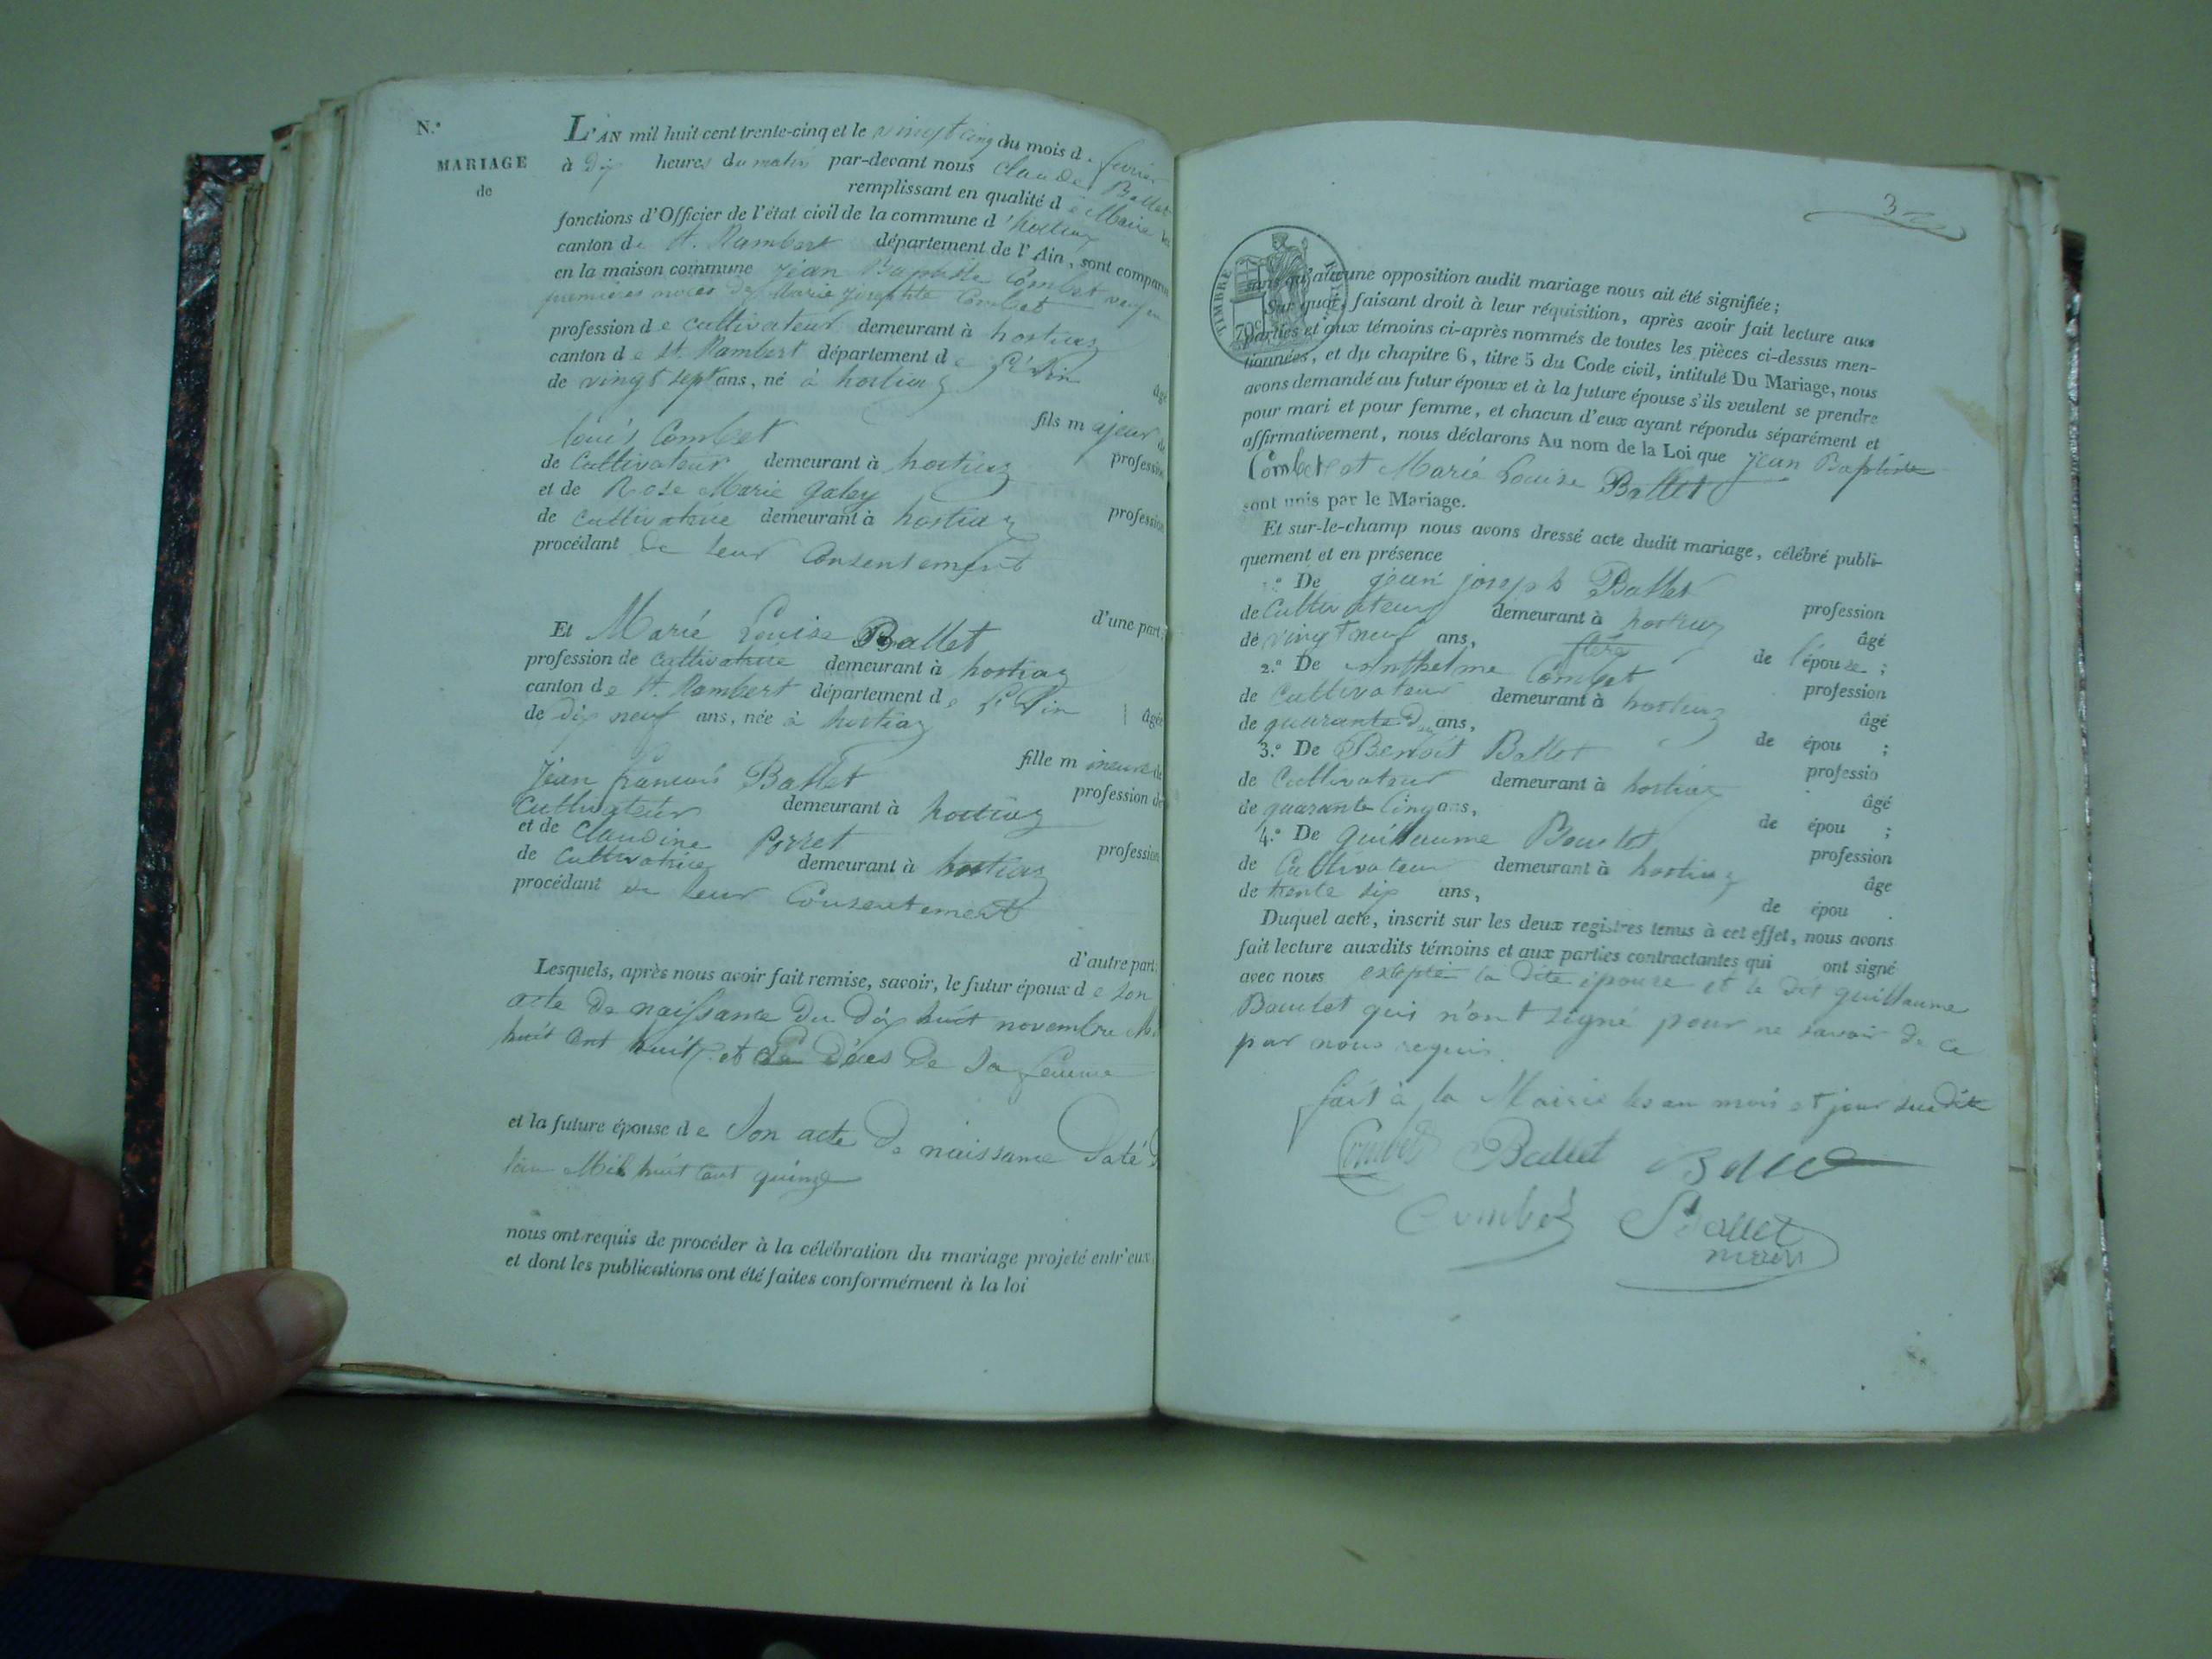 N.°
MARIAGE
de
L'AN mil huit cent trente-cinq et le vingt cinq du mois de fevrier
à dix heures du matin par-devant nous Claude Ballet
remplissant en qualité de Maire les
fonctions d'Officier de l'état civil de la commune d'hostiaz
canton de St. Rambert département de l'Ain, sont comparus
en la maison commune Jean Baptiste Combet veuf en
premieres noces de Marie Josephte Combet
profession de cultivateur demeurant à hostiaz
canton de St. Rambert département de l'Ain
âgé
de vingt sept ans, né à hostiaz
fils majeur de
louis Combet
profession
de Cultivateur demeurant à hostiaz
et de Rose Marie Galey
profession
de cultivatrice demeurant à hostiaz
procédant de leur Consentement
d'une part;
Et Marie Louise Ballet
profession de cultivatrice demeurant à hostiaz
canton de St. Rambert département de l'Ain
âgée
de dix neuf ans, née à hostiaz
fille mineure de
Jean francois Ballet
profession de
Cultivateur demeurant à hostiaz
et de Claudine Porret
profession
de Cultivatrice demeurant à hostiaz
procédant de leur Consentement
d'autre part;
Lesquels, après nous avoir fait remise, savoir, le futur époux de son
acte de naissance du dix huit novembre Mil
huit cent huit et de décès de sa femme
et la future épouse de son acte de naissance daté
l'an Mil huit cent quinze
nous ont requis de procéder à la célébration du mariage projeté entr'eux
et dont les publications ont été faites conformément à la loi
3
TIMBRE
70c
sans qu'aucune opposition audit mariage nous ait été signifiée;
Sur quoi, faisant droit à leur réquisition, après avoir fait lecture aux
parties et aux témoins ci-après nommés de toutes les pièces ci-dessus men-
tionnées, et du chapitre 6, titre 5 du Code civil, intitulé Du Mariage, nous
avons demandé au futur époux et à la future épouse s'ils veulent se prendre
pour mari et pour femme, et chacun d'eux ayant répondu séparément et
affirmativement, nous déclarons Au nom de la Loi que Jean Baptiste
Combet et Marie Louise Ballet
sont unis par le Mariage.
Et sur-le-champ nous avons dressé acte dudit mariage, célébré publi-
quement et en présence
1.° De jean joseph Ballet
profession
de Cultivateur demeurant à hostiaz
âgé
de vingt neuf ans, frère de l'épouse;
2.° De Anthelme Combet
profession
de Cultivateur demeurant à hostiaz
âgé
de quarante deux ans, de épou ;
3.° De Benoit Ballet
professio
de Cultivateur demeurant à hostiaz
âgé
de quarante Cinq ans, de épou ;
4.° De guillaume Boulet
profession
de Cultivateur demeurant à hostiaz
âgé
de trente six ans, de épou .
Duquel acte, inscrit sur les deux registres tenus à cet effet, nous avons
fait lecture auxdits témoins et aux parties contractantes qui ont signé
avec nous excepté la dite épouse et le dit guillaume
Boulet qui n'ont signé pour ne savoir de ce
par nous requis.
fait à la Mairie les an mois et jour susdits
Combet Ballet Ballet
Combet Ballet
maire